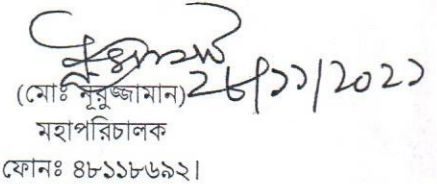 (মোঃ নূরুজ্জামান) ২৮/১১/২০২১
মহাপরিচালক
ফোনঃ ৪৮১১৮৬৯২।